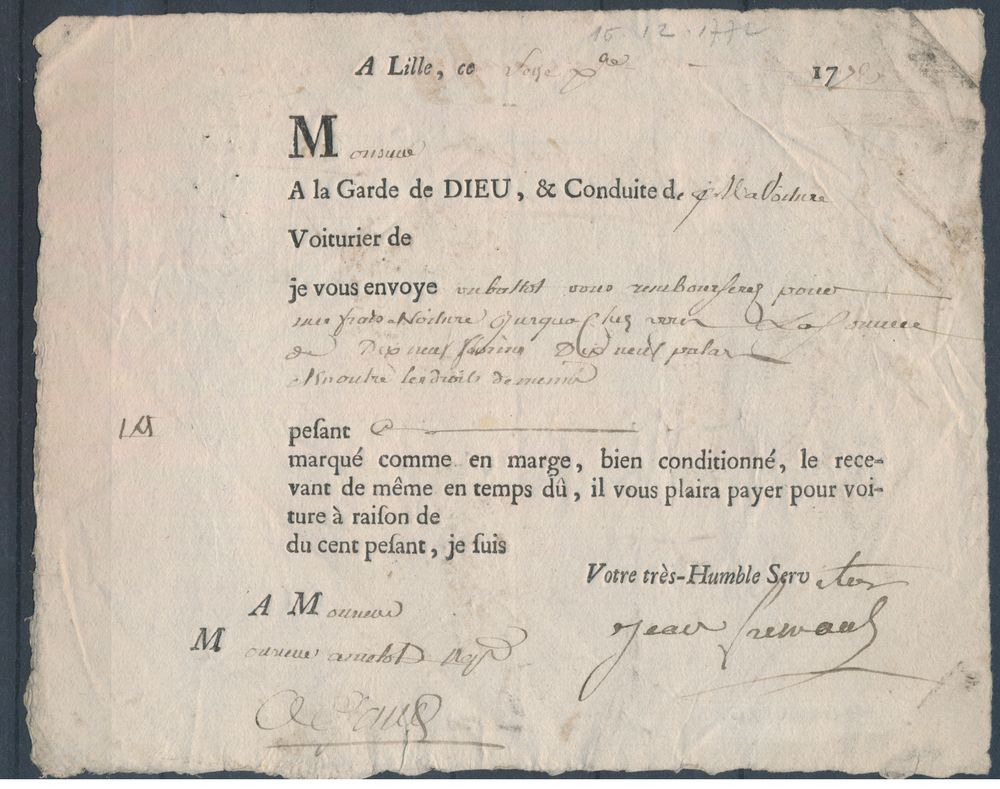 15.12.1772
A Lille, ce 17
Monsieur
A la Garde de DIEU, & Conduite de La Voiture
Voiturier de
je vous envoye un ballot vous rembourserez pour
mes frais Voiture jusqua chez vous La Somme
de Dix neuf florins Dix neuf patar
En outre les droits de
peſant
marqué comme en marge, bien conditionné, le rece-
vant de même en temps dû, il vous plaira payer pour voi-
ture à raiſon de
du cent peſant, je ſuis
Votre très-Humble Serviteur
A Monsieur
Monsieur
Jean